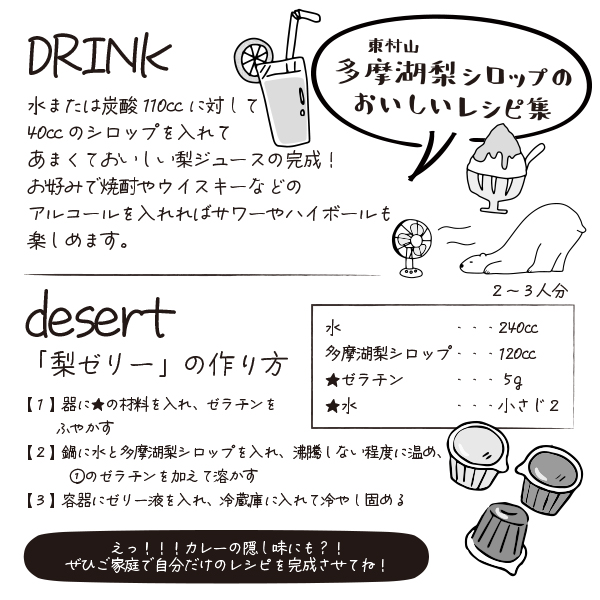 東村山
多摩湖梨シロップの
おいしいレシピ集
DRINK
水または炭酸110ccに対して
40ccのシロップを入れて
あまくておいしい梨ジュースの完成！
お好みで焼酎やウイスキーなどの
アルコールを入れればサワーやハイボールも
楽しめます。
desert
「梨ゼリー」の作り方
２～３人分
水 ---240cc
多摩湖梨シロップ---120cc
★ゼラチン ---5g
★水 ---小さじ２
【１】器に★の材料を入れ、ゼラチンを
ふやかす
【２】鍋に水と多摩湖梨シロップを入れ、沸騰しない程度に温め、
①のゼラチンを加えて溶かす
【３】容器にゼリー液を入れ、冷蔵庫に入れて冷やし固める
えっ！！！カレーの隠し味にも？！
ぜひご家庭で自分だけのレシピを完成させてね！